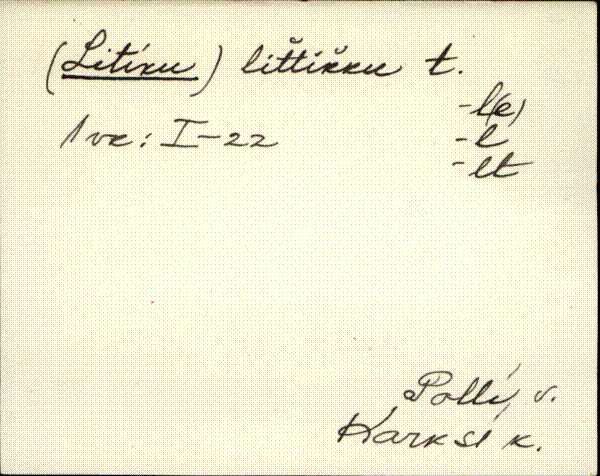 (Litiku) lit̆tik̆ku t.
-l(e)
1 vk: I-22
-l
-lt
Polli v.
Karksi k.